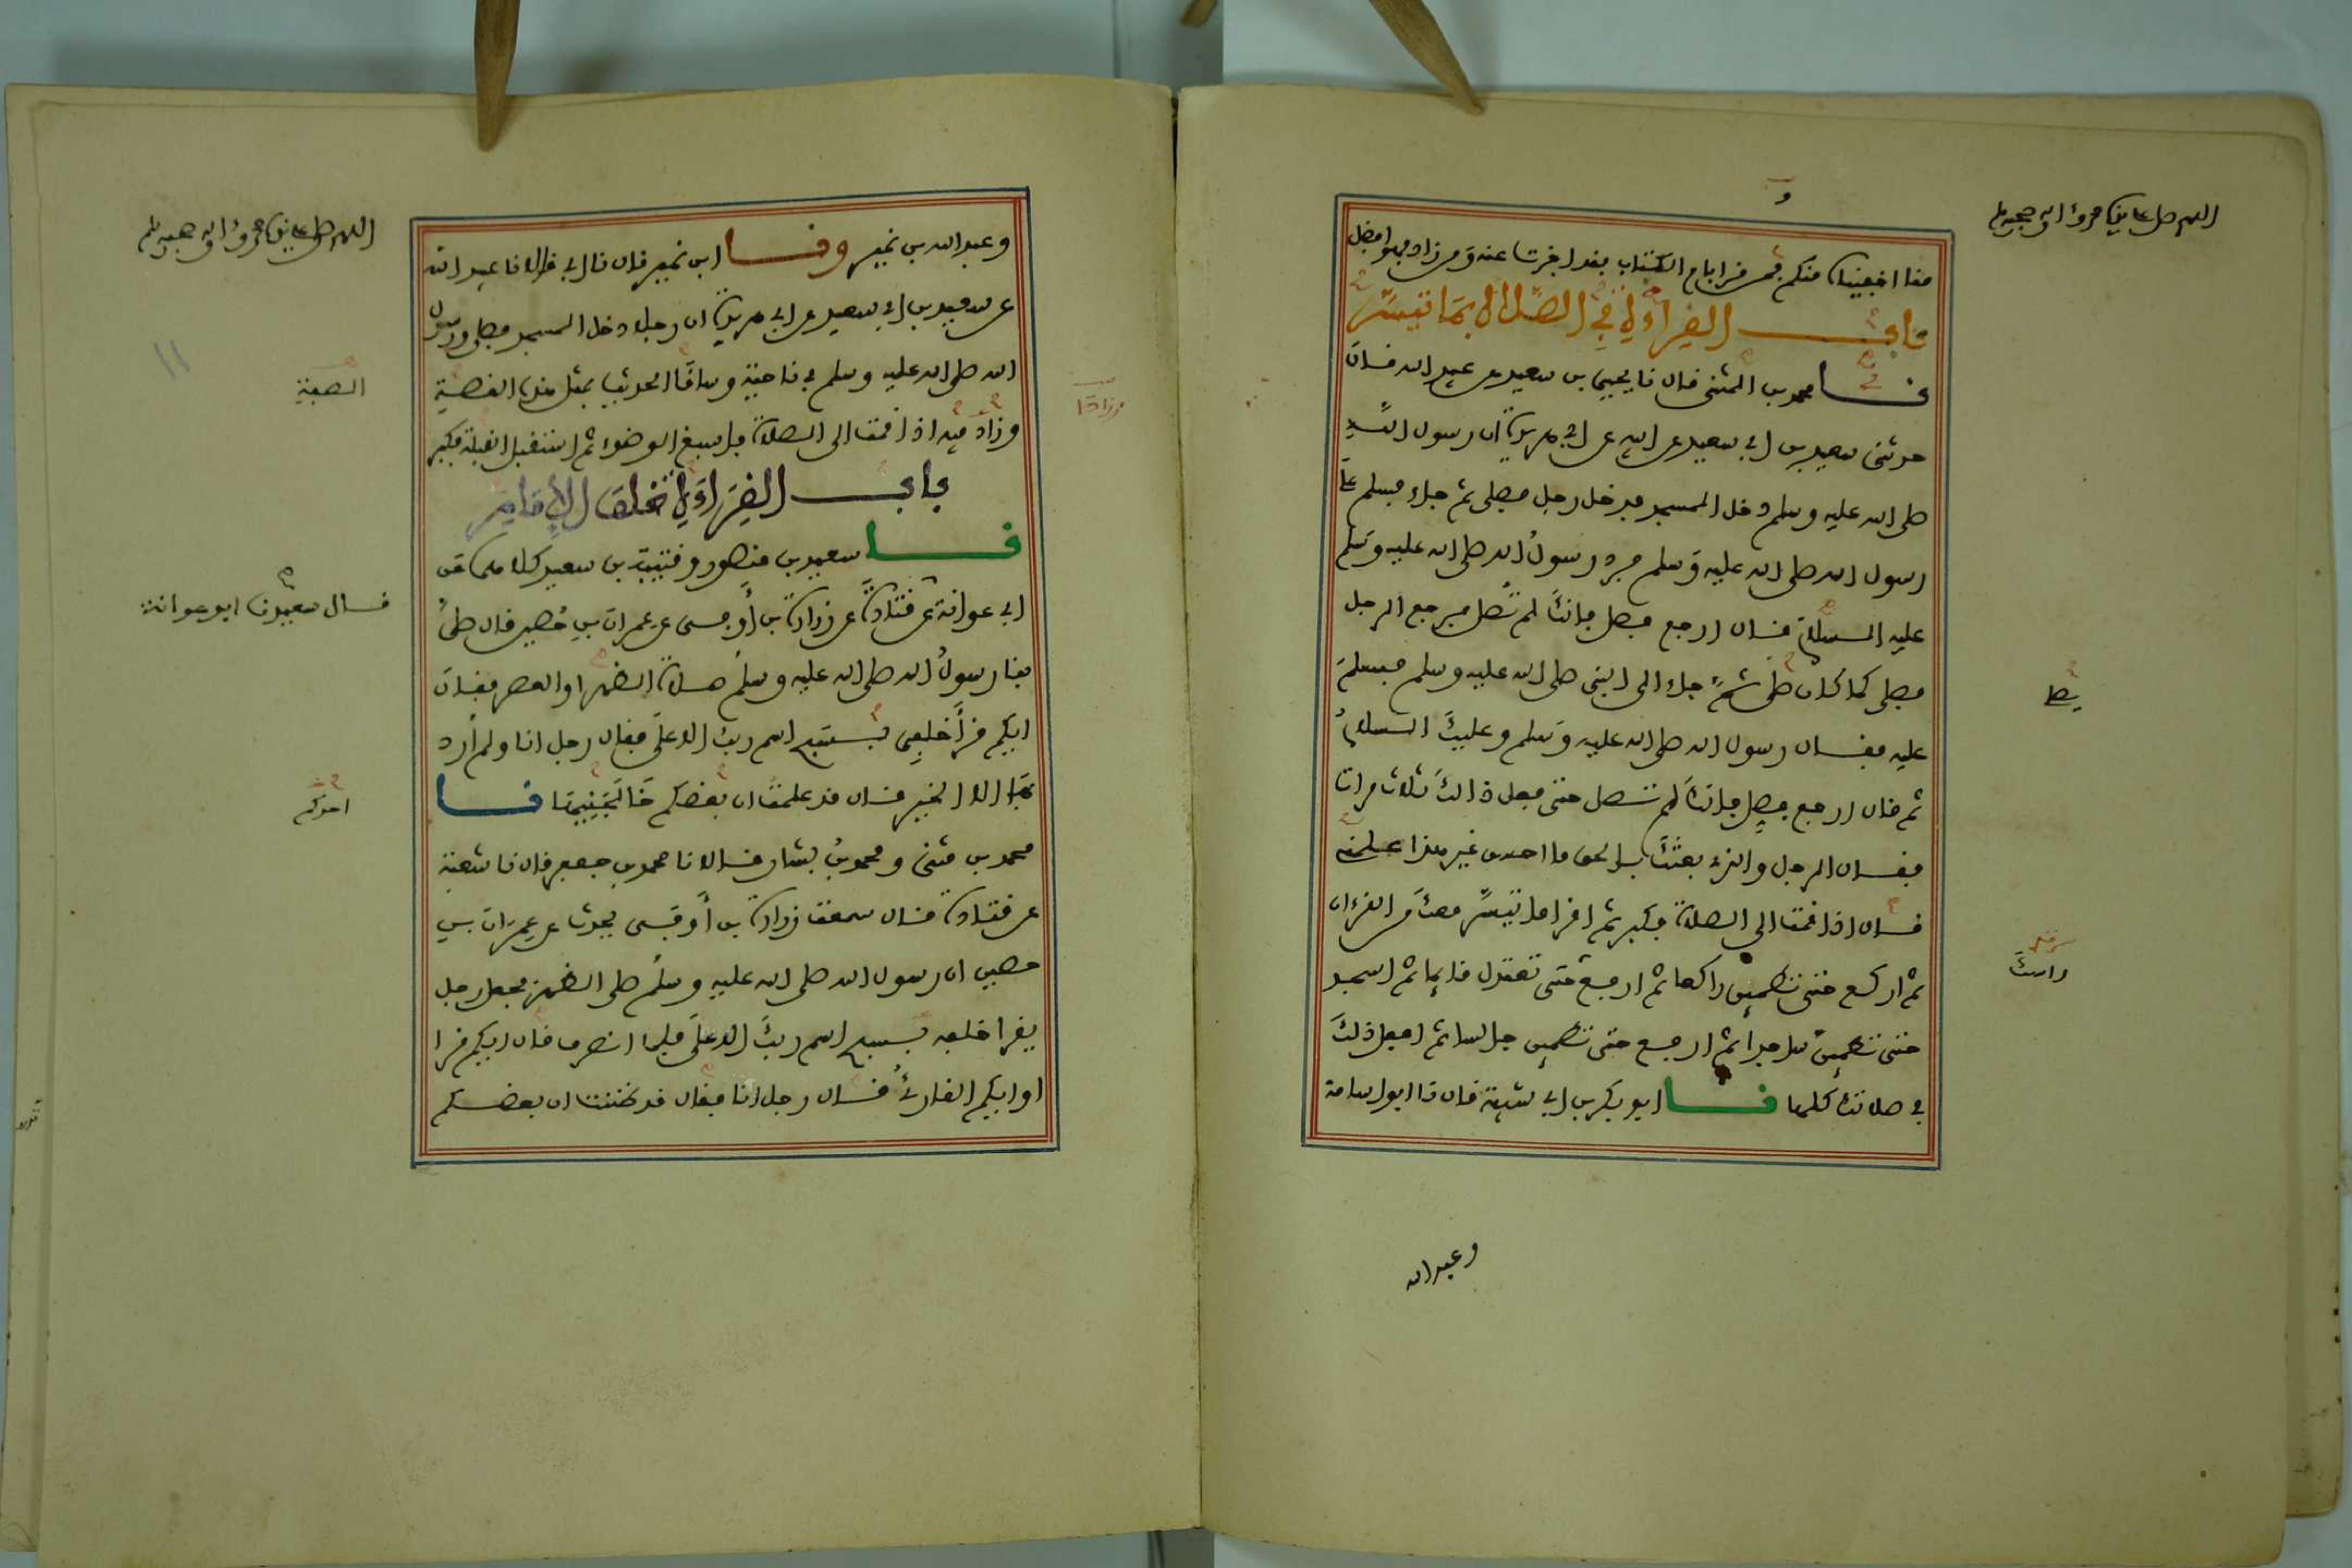 اللهم صل على نبينا محمد واله وصحبه وسلم
منا اخفيناه منكم فمن قرا بام الكتاب فقد اجزت عنه ومن زاد فهو افضل
باب القراءة في الصلاة بما تيسر
نا محمد بن المثنى قال نا يحيى بن سعيد عن عبيد الله قال
حدثني سعيد بن ابي سعيد عن ابيه عن ابي هريرة ان رسول الله
صلى الله عليه وسلم دخل المسجد فدخل رجل فصلى ثم جاء فسلم على
رسول الله صلى الله عليه وسلم فرد رسول الله صلى الله عليه وسلم
عليه السلام فقال ارجع فصل فانك لم تصل فرجع الرجل
فصلى كما كان صلى ثم جاء الى النبي صلى الله عليه وسلم فسلم
عليه فقال رسول الله صلى الله عليه وسلم وعليك السلام
ثم قال ارجع فصل فانك لم تصل حتى فعل ذالك ثلاث مرات
فقال الرجل والذي بعثك بالحق ما احسن غير هذا علمني
قال اذا قمت الى الصلاة فكبر ثم اقرا ما تيسر معك من القرءان
ثم اركع حتى تطمين راكعا ثم ارفع حتى تعتدل قايما ثم اسجد
حتى تطمين ساجدا ثم ارفع حتى تطمين جالسا ثم افعل ذلك
في صلاتك كلها نا ابو بكر بن ابي شيبة قال نا ابو اسامة
وعبد الله
اللهم صل على نبينا محمد واله وصحبه وسلم
وعبد الله بن نمير ونا ابن نمير قال نا ابي قالا نا عبيد الله
عن سعيد بن ابي سعيد عن ابي هريرة ان رجلا دخل المسجد فصلى ورسول
الله صلى الله عليه وسلم في ناحية وساقا الحديث بمثل هذه القصة
القصة
وزاد فيه اذا قمت الى الصلاة فاسبغ الوضوء ثم استقبل القبلة فكبر
باب القراءة خلف الامام
نا سعيد بن منصور وقتيبة بن سعيد كلاهما عن
ابي عوانة عن قتادة عن زرارة بن أوفى عن عمران بن حصين قال صلى
قال سعيد نا ابو عوانة
بنا رسول الله صلى الله عليه وسلم صلاة الظهر او العصر فقال
ايكم قرأ خلفي بسبح اسم ربك الاعلى فقال رجل انا ولم أرد
بها الا الخير قال قد علمت ان بعضكم خالجنيها نا
احدكم
محمد بن مثنى ومحمد بن بشار قالا نا محمد بن جعفر قال نا شعبة
عن قتادة قال سمعت زرارة بن أوفى يحدث عن عمران بن
حصين ان رسول الله صلى الله عليه وسلم صلى الظهر فجعل رجل
يقرا خلفه بسبح اسم ربك الاعلى فلما انصرف قال ايكم قرا
او ايكم القارئ قال رجل انا فقال قد ظننت ان بعضكم